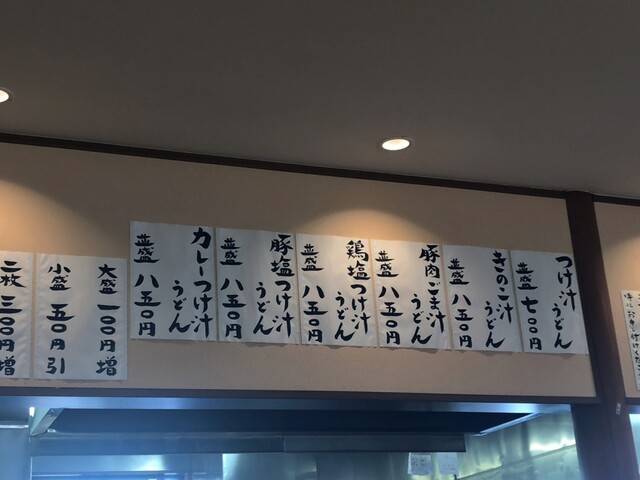 つけ汁うどん
並盛 七〇〇円
きのこ汁うどん
並盛 八五〇円
豚肉ごま汁うどん
並盛 八五〇円
鶏塩つけ汁うどん
並盛 八五〇円
豚塩つけ汁うどん
並盛 八五〇円
カレーつけ汁うどん
並盛 八五〇円
大盛 一〇〇円増
小盛 五〇円引
二枚 三〇〇円増